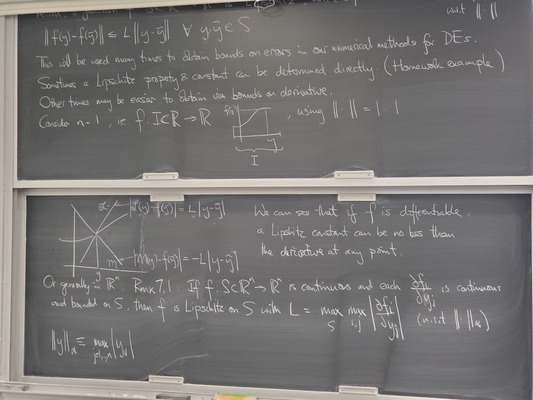 w.r.t. ‖·‖
‖f(y)-f(ȳ)‖ ≤ L‖y-ȳ‖ ∀ y,ȳ ∈ S
This will be used many times to obtain bounds on errors in our numerical methods for DEs.
Sometimes a Lipschitz property & constant can be determined directly (Homework example)
Other times may be easier to obtain via bounds on derivative.
Consider n=1, ie f: I⊂ℝ → ℝ f(y) y I , using ‖·‖ = |·|
|f(y)-f(ȳ)| = L|y-ȳ|
We can see that if f is differentiable,
a Lipschitz constant can be no less than
the derivative at any point.
(y)-f(ȳ)| = -L|y-ȳ|
y
Or generally in ℝⁿ Rmk 7.1: If f: S⊂ℝⁿ → ℝⁿ is continuous and each ∂fᵢ/∂yⱼ is continuous
and bounded on S, then f is Lipschitz on S with L = max_S max_{i,j} |∂fᵢ/∂yⱼ| (w.r.t. ‖·‖∞)
‖y‖∞ ≡ max_{j=1,..,n} |yⱼ|